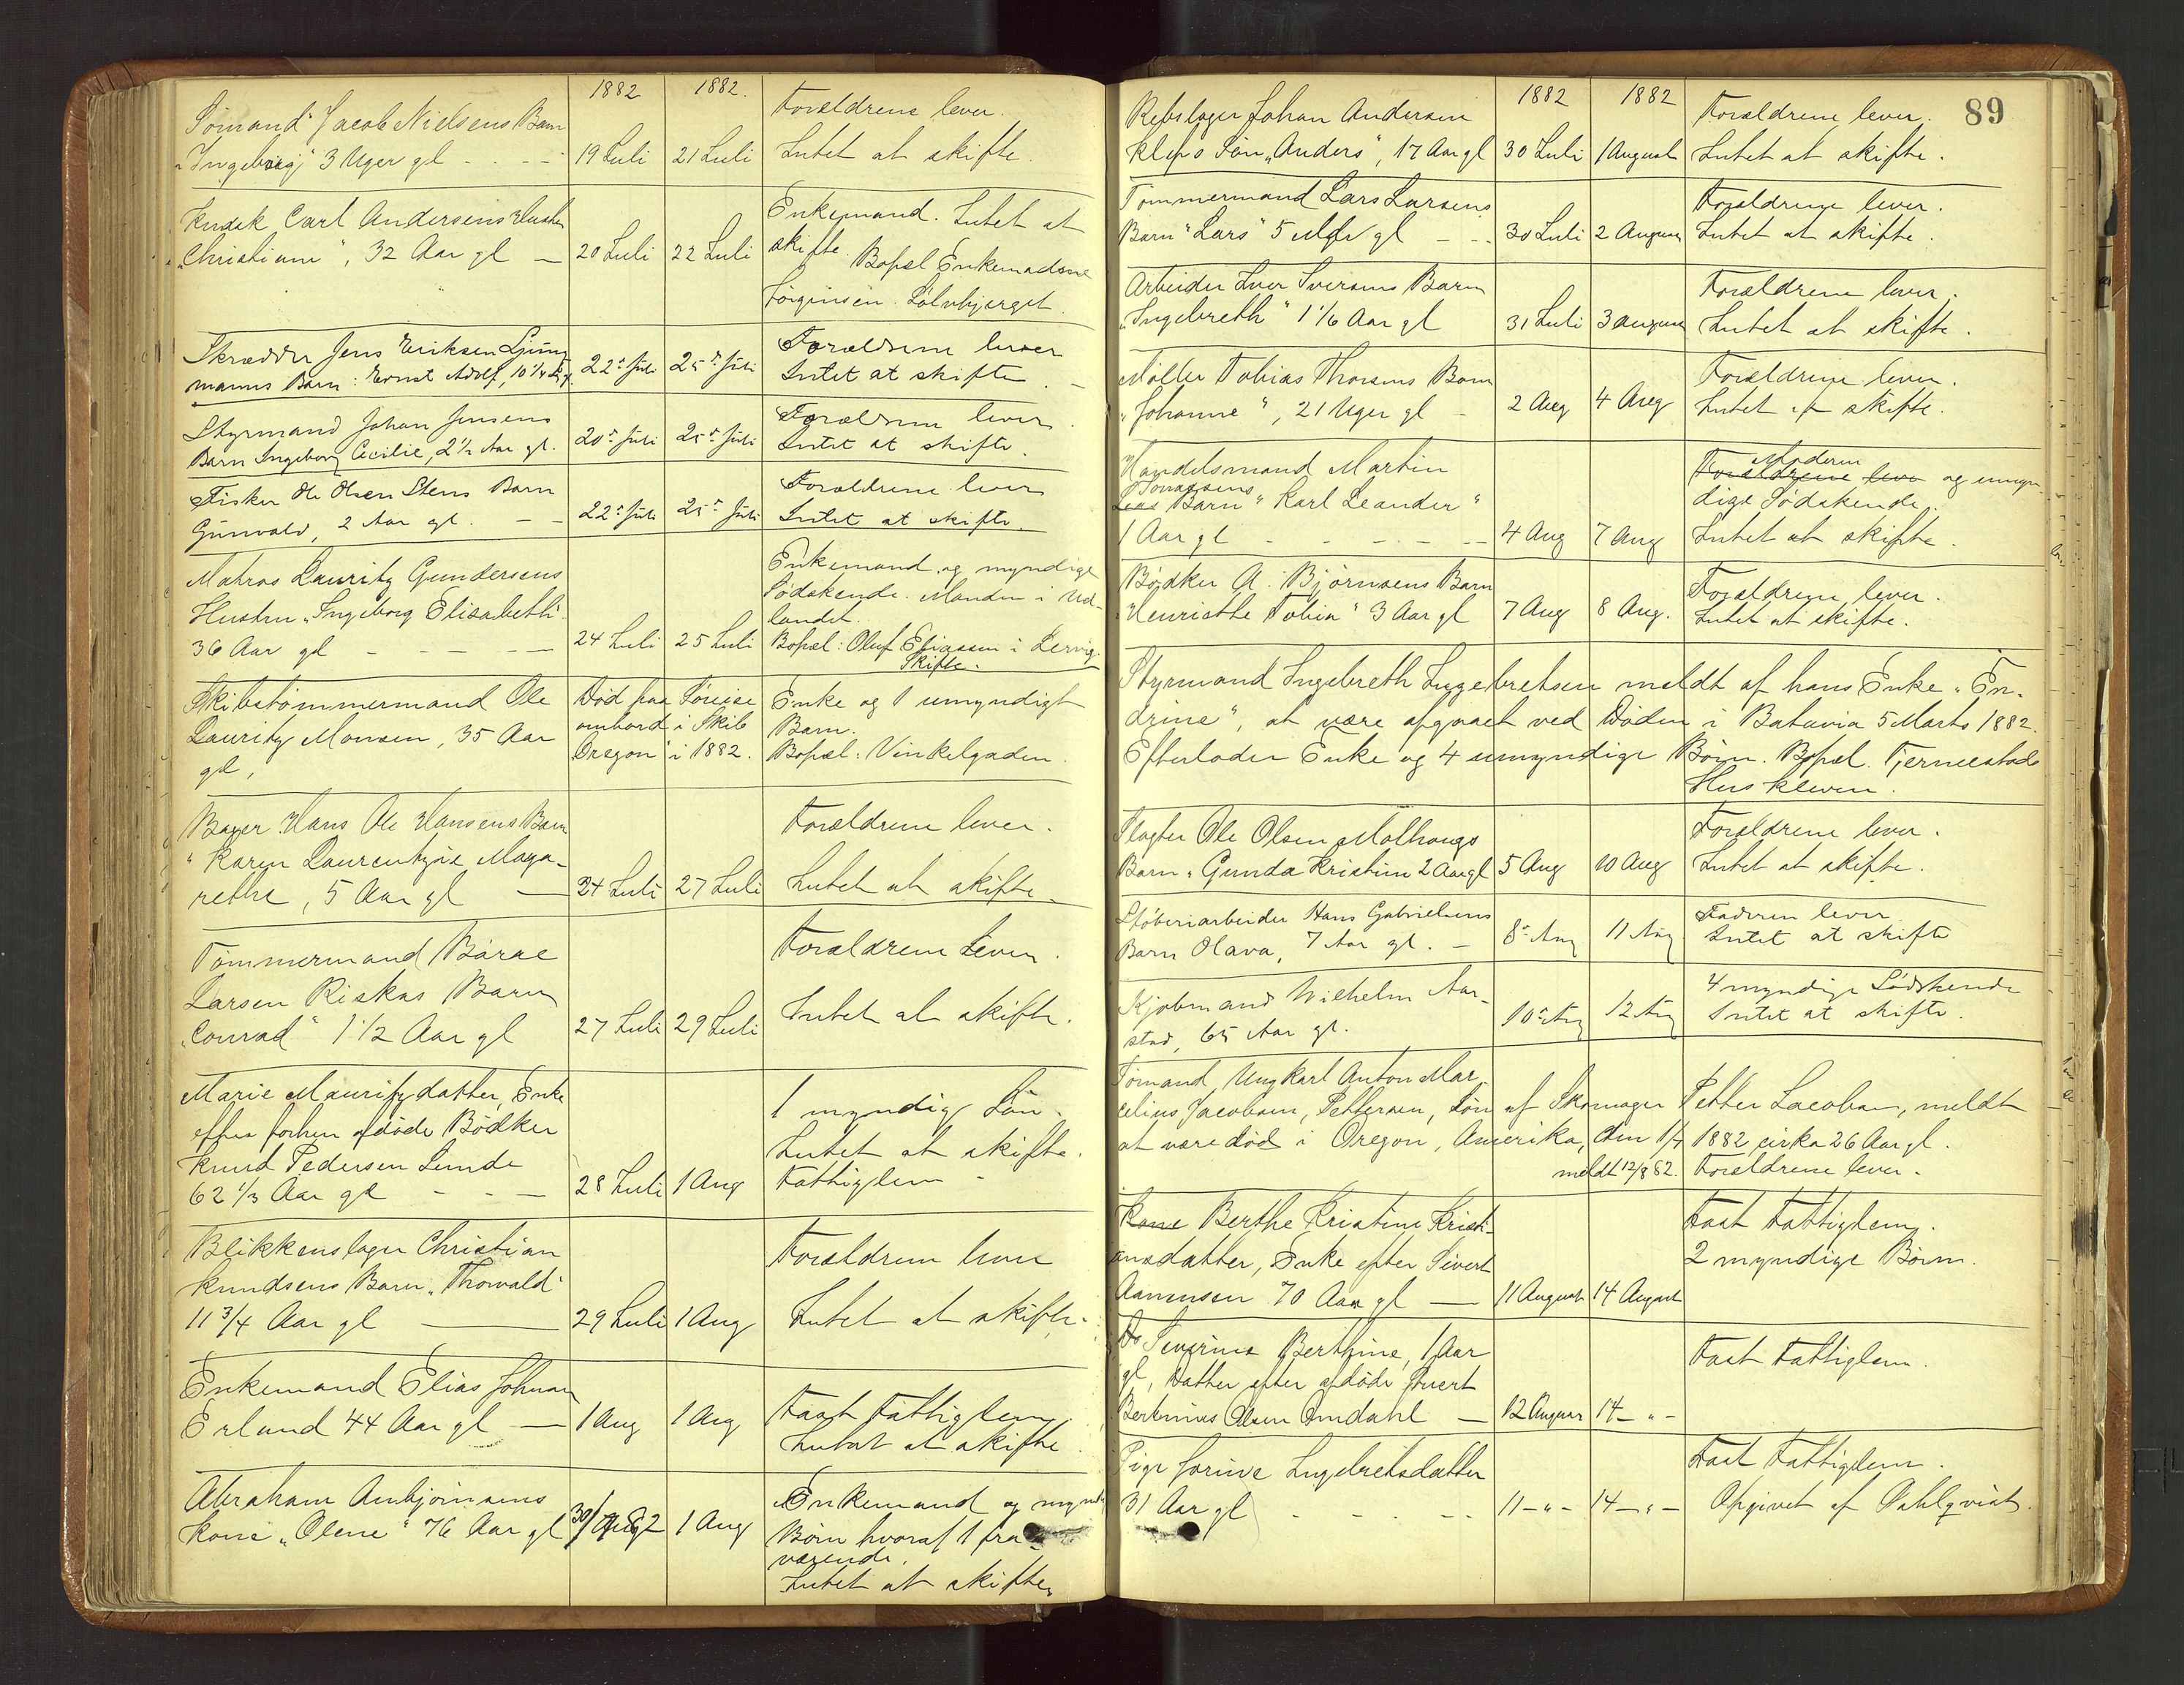 1882 1882.
Sömand Jacob Nielsens Barn Forældrene lever.
"Ingeborg" 3 Uger gl - - - 19 Juli 21 Juli Intet at skifte.
Kudsk Carl Andersens Hustru Enkemand. Intet at
"Christiane", 32 Aar gl — 20 Juli 22 Juli skifte. Bopæl Enkemadame
Jörginsen. Sölvbjerget.
Skrædder Jens Eriksen Ljung- Forældrene lever
manns Barn: Ernst Adolf, 10 1/4 22de Juli 25de Juli Intet at skifte. -
Styrmand Johan Jensens Forældrene lever
Barn Ingeborg Cecilie, 2 1/2 Aar gl. 20de Juli 25de Juli Intet at skifte.
Fisker Ole Olsen Stens Barn Forældrene lever
Gunvald, 2 Aar gl. — — 22de Juli 25de Juli Intet at skifte.
Matros Lauritz Gundersens Enkemand og myndige
Hustru "Ingeborg Elisabeth" Södskende. Manden i Ud-
landet.
36 Aar gl - - - - 24 Juli 25 Juli Bopæl: Oluf Eliassen i Lervig.
Skifte.
Skibstömmermand Ole Död paa Söreise Enke og 1 umyndigt
Lauritz Monsen, 35 Aar ombord i Skib Barn.
gl, "Oregon" i 1882. Bopæl: Vinkelgaden.
Bager Hans Ole Hansens Barn Forældrene lever.
"Karen Laurentzie Maga-
rethe, 5 Aar gl — 24 Juli 27 Juli Intet at skifte.
Tömmermand Börae Forældrene Lever.
Larsen Riskas Barn
"Conrad" 1 1/2 Aar gl 27 Juli 29 Juli Intet at skifte.
Marie Mauritzdatter, Enke 1 myndig Sön.
efter forhen afdöde Bödker Intet at skifte.
Knud Pedersen Lunde
62 1/3 Aar gl - - - 28 Juli 1 Aug Fattiglem -
Blikkenslager Christian Forældrene lever
Knudsens Barn "Thorvald"
11 3/4 Aar gl — 29 Juli 1 Aug Intet at skifte.
Enkemand Elias Johnsen
Erland 44 Aar gl — 1 Aug 1 Aug Fast Fattiglem.
Intet at skifte
Abraham Anbjörnsens Enkemand og mynd
Kone "Olene" 76 Aar gl 30/7 82 1 Aug Börn hvoraf 1 fra-
værende.
Intet at skifte.
89
1882 1882
Rebslager Johan Andersen Forældrene lever.
Kleps Sön "Anders", 17 Aar gl 30 Juli 1 August Intet at skifte.
Tömmermand Lars Larsens Forældrene lever.
Barn "Lars" 5 Mdr gl - - - 30 Juli 2 August Intet at skifte.
Arbeider Iver Iversens Barn Forældrene lever.
"Ingebreth" 1 1/6 Aar gl 31 Juli 3 August Intet at skifte.
Möller Tobias Thorsens Barn Forældrene lever.
"Johanne", 21 Uger gl - 2 Aug 4 Aug Intet at skifte.
Handelsmand Martin Moderen
Tonnessens Forældrene lever og umyn-
Barn "Karl Leander" dige Södskende.
1 Aar gl - - - - - 4 Aug 7 Aug Intet at skifte.
Bödker A. Björnsens Barn Forældrene lever.
"Henriette Tobia" 3 Aar gl 7 Aug 8 Aug. Intet at skifte.
Styrmand Ingebreth Ingebretsen meldt af hans Enke "En-
drine", at være afgaaet ved Döden i Batavia 5 Marts 1882.
Efterlader Enke og 4 umyndige Börn. Bopæl. Tjernestads
Hus Kleven.
Slagter Ole Olsen Molhougs Forældrene lever.
Barn "Gunda Kristine 2 Aar gl 5 Aug 10 Aug Intet at skifte.
Stöberiarbeider Hans Gabrielsens Faderen lever
Barn Olava, 7 Aar gl. — 8de Aug 11 Aug Intet at skifte
Kjöbmand Wilhelm Aar- 4 myndige Södskende
stad, 65 Aar gl. 10de Aug 12 Aug Intet at skifte.
Sömand, Ungkarl Anton Mar-
celius Jacobsen, Pettersen, Sön af Skomager Petter Jacobsen, meldt
at være död i Oregon, Amerika, den 1/7 1882 cirka 26 Aar gl.
meldt 12/8 82. Forældrene lever.
Kone Berthe Kristine Kristi- Fast Fattiglem.
ansdatter, Enke efter Sivert 2 myndige Börn.
Aamunsen 70 Aar gl — 11 August 14 August
Severine Berthine, 1 Aar Fast Fattiglem.
gl, Datter efter afdöde Sivert
Bertinius Olsen Omdahl — 12 August 14 — " —
Pige Jorine Ingebretsdatter Fast Fattiglem.
31 Aar gl - - - - 11 — " — 14 — " — Opgivet af Dahlqvist.